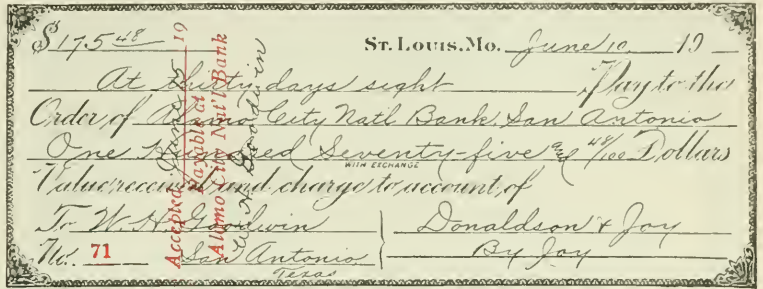 $175 48 St. Louis, Mo. June 10 19
At thirty days sight Pay to the
Order of Alamo City Natl Bank San Antonio
One Hundred Seventy-five and 48/100 Dollars
WITH EXCHANGE
Value received and charge to account of
To W. H. Goodwin Donaldson & Joy
No. 71 San Antonio By Joy
Texas
Accepted June 19
Payable at
Alamo City Nat'l Bank
W. H. Goodwin